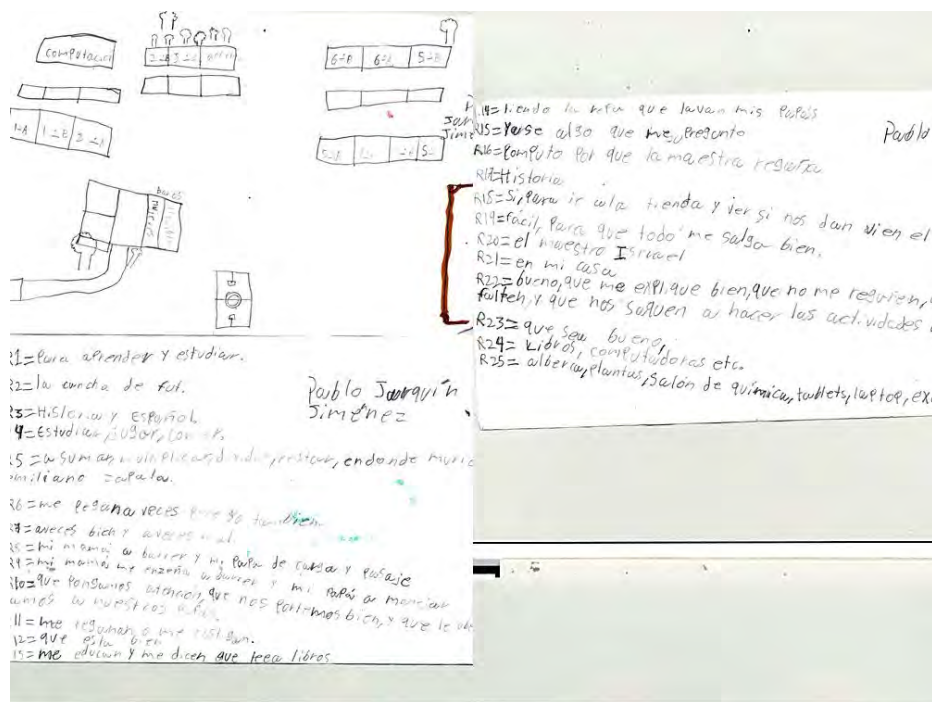 computaci
6-B 6-A 5-B
1-A 1-B 2-A
baños
Pablo Jarquín
Jiménez
R1=Para aprender y estudiar.
R2=la cancha de fut.
R3=Historia y Español.
R4=Estudiar, jugar, comer.
R5=a sumar, multiplicar, dividir, restar, endonde murio
emiliano zapata.
R6=me pegan a veces pero yo tambien.
R7=aveces bien y aveces mal.
R8=mi mamá a barrer y mi papá de carga y pasaje
R9=mi mamá me enzeña a barrer y mi papá a manejar
R10=que pongamos atención, que nos portemos bien, y que le
a nuestros papás.
R11=me regañan o me castigan.
R12=que esta bien
me educan y me dicen que leea libros
Jar
Jime
R14=tiendo la ropa que lavan mis papás
R15=Yo se algo que me pregunto
Pablo
R16=Computo Por que la maestra regaña
R17=Historia
R18=Si, para ir a la tienda y ver si nos dan vien el
R19=fácil, Para que todo me salga bien.
R20=el maestro Isrrael
R21=en mi casa
R22=bueno, que me explique bien, que no me regañen,
falten, y que nos saquen a hacer las actividades
R23=que sea bueno,
R24=Libros, computadoras etc.
R25=alberca, plantas, salón de química, tablets, laptop, ex